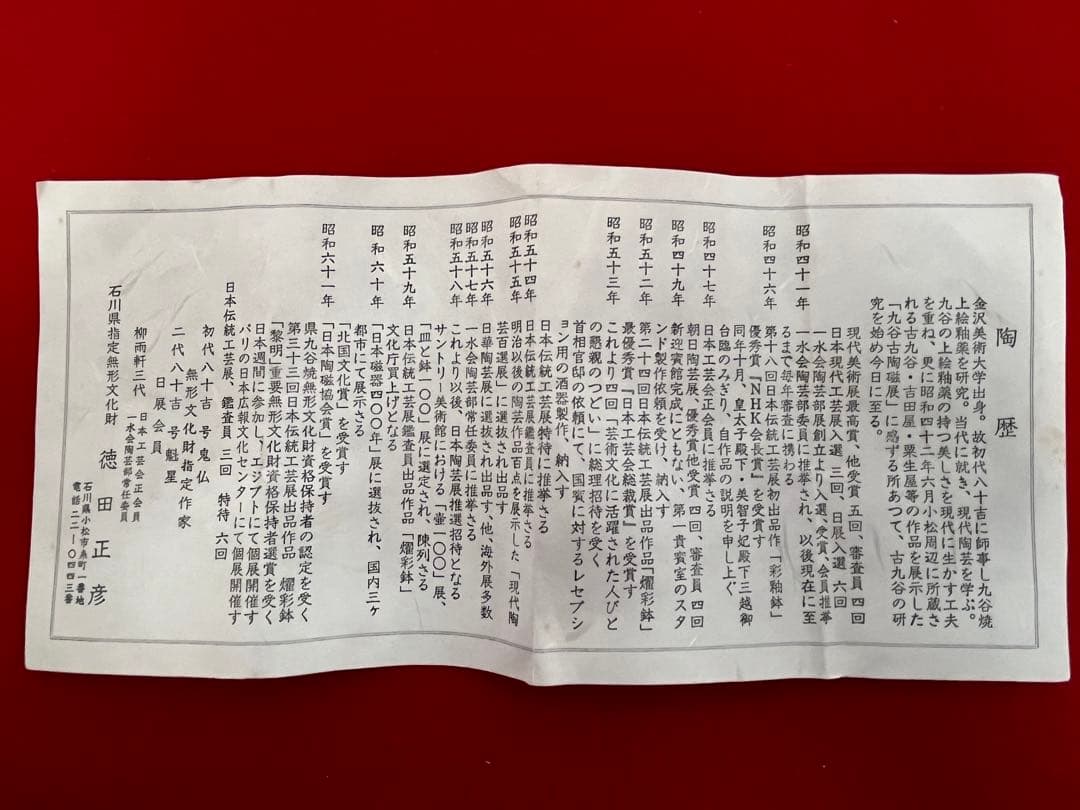 陶歴
金沢美術大学出身。故初代八十吉に師事し九谷焼
上絵釉薬を研究。当代に就き、現代陶芸を学ぶ。
九谷の上絵釉薬の持つ美しさを現代に生かす工夫
を重ね、更に昭和四十二年六月小松周辺に所蔵さ
れる古九谷・吉田屋・粟生屋等の作品を展示した
「九谷古陶磁展」に感ずる所あつて、古九谷の研
究を始め今日に至る。
現代美術展最高賞、他受賞 五回、審査員 四回
日本現代工芸展入選 三回、日展入選 六回
昭和四十一年 一水会陶芸部展創立より入選、受賞、会員推挙
一水会陶芸部委員に推挙され、以後現在に至
るまで毎年審査に携わる
昭和四十六年 第十八回日本伝統工芸展初出品作「彩釉鉢」
優秀賞『NHK会長賞』を受賞す
同年十月、皇太子殿下・美智子妃殿下三越御
台臨のみぎり、自作品の説明を申し上ぐ
昭和四十七年 日本工芸会正会員に推挙さる
朝日陶芸展、優秀賞他受賞 四回、審査員 四回
昭和四十九年 新迎賓館完成にともない、第一貴賓室のスタ
ンド製作依頼を受け、納入す
昭和五十二年 第二十四回日本伝統工芸展出品作品「燿彩鉢」
最優秀賞『日本工芸会総裁賞』を受賞す
昭和五十三年 これより四回「芸術文化に活躍された人びと
の懇親のつどい」に総理招待を受く
首相官邸の依頼にて、国賓に対するレセプシ
ョン用の酒器製作、納入す
昭和五十四年 日本伝統工芸展特待に推挙さる
日本伝統工芸展鑑査員に推挙さる
昭和五十五年 明治以後の陶芸作品百点を展示した「現代陶
芸百選展」に選抜され出品す
昭和五十六年 日華陶芸展に選抜され出品す、他、海外展多数
昭和五十七年 一水会陶芸部常任委員に推挙さる
昭和五十八年 これより以後、日本陶芸展推選招待となる
サントリー美術館における「壷一〇〇」展、
「皿と鉢一〇〇」展に選定され、陳列さる
昭和五十九年 日本伝統工芸展鑑査員出品作品「燿彩鉢」
文化庁買上げとなる
昭和六十年 「日本磁器四〇〇年」展に選抜され、国内三ヶ
都市にて展示さる
「北国文化賞」を受賞す
「日本陶磁協会賞」を受賞す
昭和六十一年 県九谷焼無形文化財資格保持者の認定を受く
第三十三回日本伝統工芸展出品作品 燿彩鉢
「黎明」重要無形文化財資格保持者選賞を受く
日本週間に参加し、エジプトにて個展開催す
パリの日本広報文化センターにて個展開催す
日本伝統工芸展、鑑査員 三回 特待 六回
初代八十吉 号鬼仏
無形文化財指定作家
二代八十吉 号魁星
日展会員
柳雨軒三代 日本工芸会正会員
一水会陶芸部常任委員
石川県指定無形文化財 徳田正彦
石川県小松市糸町一番地
電話二二―〇四四三番